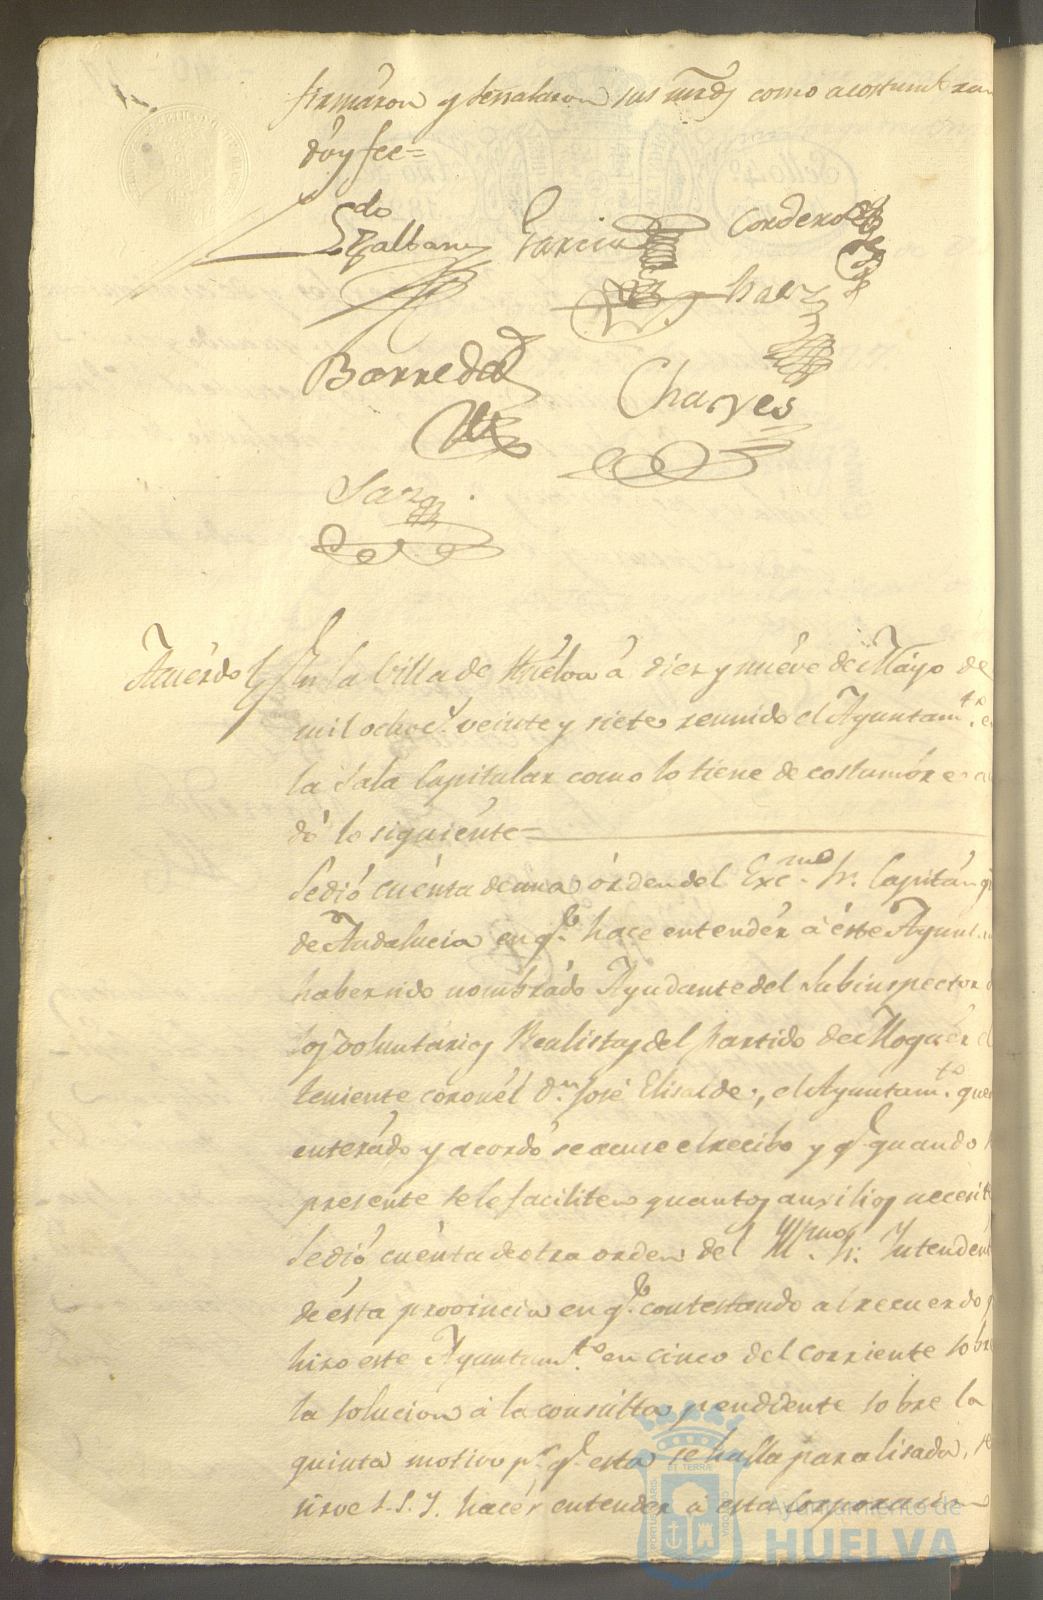 firmaron y señalaron sus mrds como acostumbran
dóy fee=
Ldo
Garcia
Cordero
Saez
Barreda
Charves
Sanz
Acuérdo En la Villa de Huélva á diez y nuéve de Máyo de
mil ochocs. veinte y siete reunido el Ayuntamto. e
la Sala Capitular como lo tiene de costumbre a
dó lo siguiénte=
Sedió cuénta de una órden del Excmo. Sr. Capitán g
de Andalucia en qe. hace entendér á éste Ayunt
haber sido nombrádo Ayudante del Subinspector d
los Voluntários Realistas del partido de Moguér el
teniente coronél Dn. José Elisalde, el Ayuntamto. que
enterádo y acordó se acuse el recibo y qe quando
presente se le faciliten quantos auxilios necesit
Sedió cuénta de otra orden del Illmo. Sr. Intendén
de ésta provincia en qe. contestando al recuerdo
hizo este Ayuntamto. en cinco del corriente sobre
la solucion á la consúlta pendiente sobre la
quinta motivo pr. qe. esta se halla paralisada, se
sirve S. S. Y. hacér entender á esta Corporacion
PORTUS MARIS
ET TERRÆ
CUSTODIA
Ayuntamiento de
HUELVA